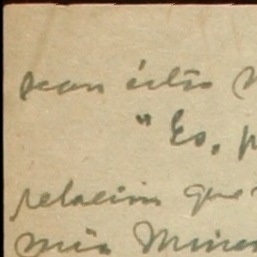 sean éstos
"Es, p
relación que
mis Minis